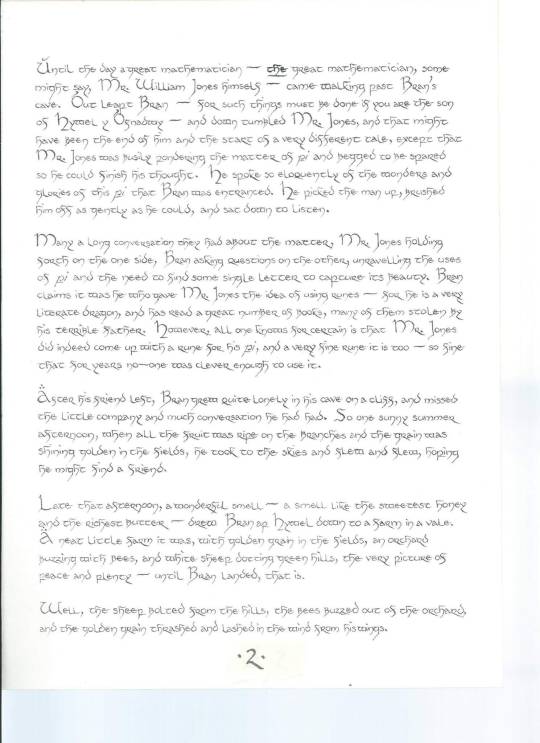 Until the day a great mathematician — the great mathematician, some
might say, Mr. William Jones himself — came walking past Bran's
cave. Out leapt Bran — for such things must be done if you are the son
of Hywel y Ognadroy — and down tumbled Mr. Jones, and that might
have been the end of him and the start of a very different tale, except that
Mr. Jones was busily pondering the matter of pi and begged to be spared
so he could finish his thought. He spoke so eloquently of the wonders and
glories of this pi that Bran was entranced. He picked the man up, brushed
him off as gently as he could, and sat down to listen.
Many a long conversation they had about the matter, Mr. Jones holding
forth on the one side, Bran asking questions on the other, unravelling the uses
of pi and the need to find some single letter to capture its beauty. Bran
claims it was he who gave Mr. Jones the idea of using runes — for he is a very
literate dragon, and has read a great number of books, many of them stolen by
his terrible father. However, all one knows for certain is that Mr. Jones
did indeed come up with a rune for his pi, and a very fine rune it is too — so fine
that for years no-one was clever enough to use it.
After his friend left, Bran grew quite lonely in his cave on a cliff, and missed
the little company and much conversation he had had. So one sunny summer
afternoon, when all the fruit was ripe on the branches and the grain was
shining golden in the fields, he took to the skies and flew and flew, hoping
he might find a friend.
Late that afternoon, a wonderful smell — a smell like the sweetest honey
and the richest butter — drew Bran ap Hywel down to a farm in a vale.
A neat little farm it was, with golden grain in the fields, an orchard
buzzing with bees, and white sheep dotting green hills, the very picture of
peace and plenty — until Bran landed, that is.
Well, the sheep bolted from the hills, the bees buzzed out of the orchard,
and the golden grain thrashed and lashed in the wind from his wings.
·2·